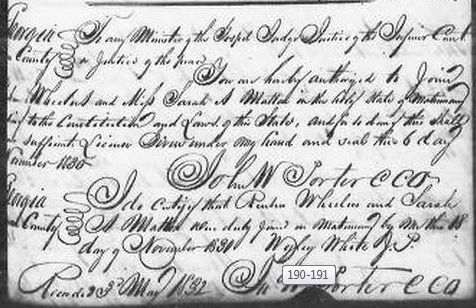 Georgia To any Minister of the Gospel Judge Justice of the Inferior Court
County or Justice of the peace
You are hereby authorized to Joine
Wheelus and Miss Sarah A Matton in the holy State of Matrimony
to the Constitution and Laws of this State, and for so doing this Shall
sufficient License Given under my hand and seal this 6 day
1830
John W Porter CCO
Georgia I do certify that Wheelus and Sarah
County A Matton were duly joined in Matrimony by me this
day of November 1830 Wesley White J.P.
Recorded 3d May 1832 Jno W Porter CCO
190-191